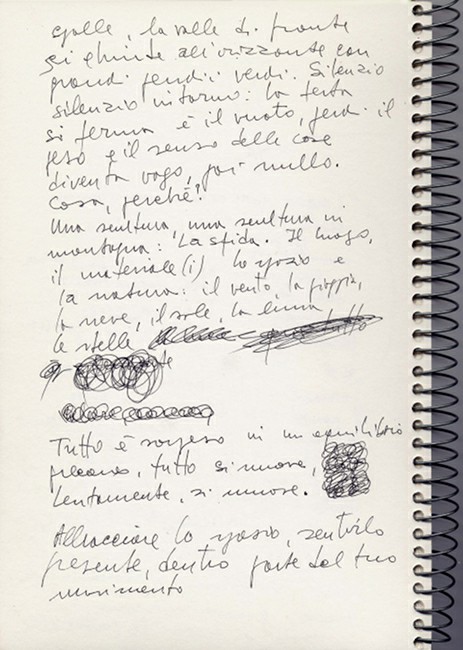 spalle, la valle di fronte
si chiude all'orizzonte con
grandi pendii verdi. Silenzio
silenzio intorno: la testa
si ferma è il vuoto, perdi il
peso e il senso delle cose
diventa vago, poi nullo.
Cosa, perché?
Una scultura, una scultura in
montagna: La sfida. Il luogo,
il materiale (i) lo spazio e
la natura: il vento, la pioggia,
la neve, il sole, la luna
le stelle
Tutto è sospeso in un equilibrio
precario, tutto si muove,
Lentamente, si muove.
Abbracciare lo spazio, sentirlo
presente, dentro parte del tuo
movimento